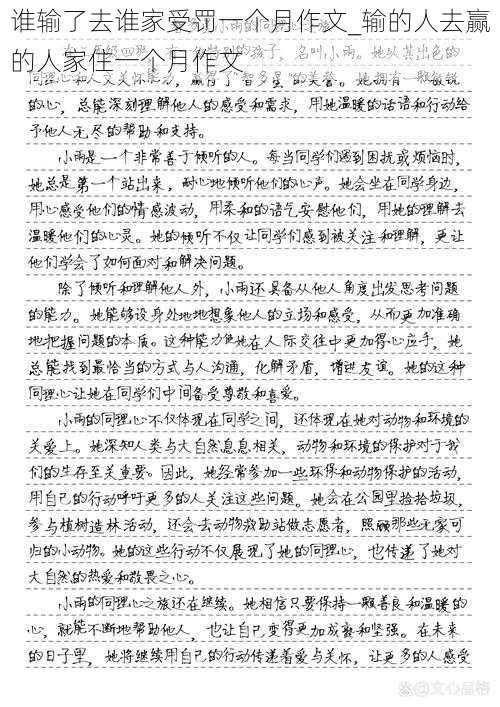 谁输了去谁家受罚一个月作文_输的人去赢
的人家住一个月作文
同理心和人文关怀能力，赢得了“智多星”的美誉。她拥有一颗敏锐
的心，总能深刻理解他人的感受和需求，用她温暖的话语和行动给
予他人无尽的帮助和支持。
小雨是一个非常善于倾听的人。每当同学们遇到困扰或烦恼时，
她总是第一个站出来，耐心地倾听他们的心声。她会坐在同学身边，
用心感受他们的情感波动，用柔和的语气安慰他们，用她的理解去
温暖他们的心灵。她的倾听不仅让同学们感到被关注和理解，更让
他们学会了如何面对和解决问题。
除了倾听和理解他人外，小雨还具备从他人角度出发思考问题
的能力。她能够设身处地地想象他人的立场和感受，从而更加准确
地把握问题的本质。这种能力使她在人际交往中更加得心应手，她
总能找到最恰当的方式与人沟通，化解矛盾，增进友谊。她的这种
同理心让她在同学们中间备受尊敬和喜爱。
小雨的同理心不仅体现在同学之间，还体现在她对动物和环境的
关爱上。她深知人类与大自然息息相关，动物和环境的保护对于我
们的生存至关重要。因此，她经常参加一些环保和动物保护的活动，
用自己的行动呼吁更多的人关注这些问题。她会在公园里捡拾垃圾，
参与植树造林活动，还会去动物救助站做志愿者，照顾那些无家可
归的小动物。她的这些行动不仅展现了她的同理心，也传递了她对
大自然的热爱和敬畏之心。
小雨的同理心之旅还在继续。她相信只要保持一颗善良和温暖的
心，就能不断地帮助他人，也让自己变得更加成熟和坚强。在未来
的日子里，她将继续用自己的行动传递着爱与关怀，让更多的人感受
文心品格